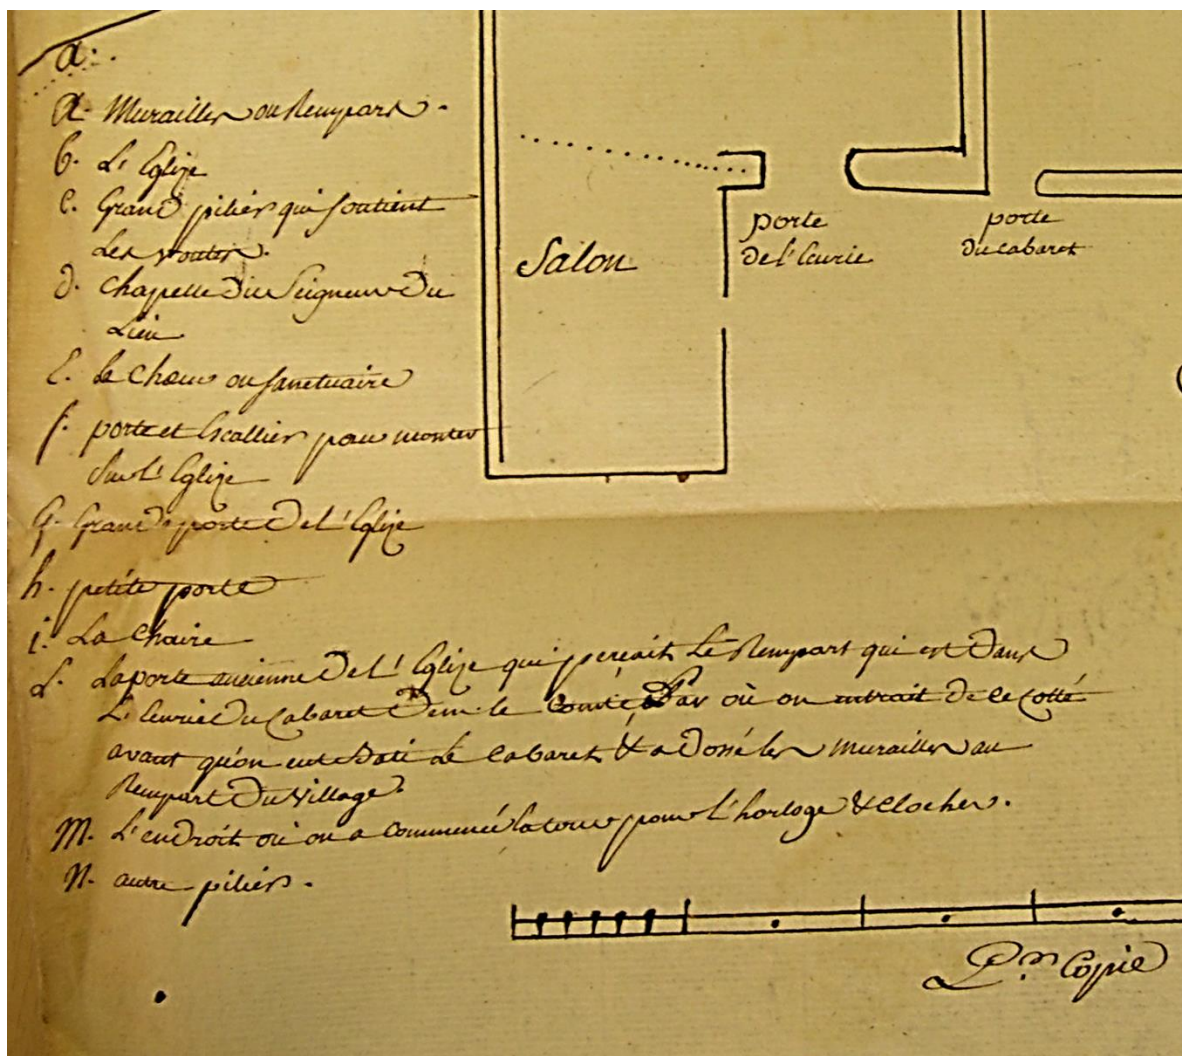 a.
a. Murailles ou Rempars.
b. L'Eglize
c. Grand pilier qui soutient
Les voutes.
d. Chapelle du Seigneur Du
Lieu
E. Le Chœur ou sanctuaire
f. porte et Escallier pour monter
sur l'Eglize
G. Grande porte de l'Eglize
h. petite porte
i. La Chaire
L. La porte ancienne De l'Eglize qui perçait Le Rempart qui est Dans
L'Ecurie Du Cabaret De m. le Comte Par où on entrait de ce Cotté
avant qu'on eut Bati Le Cabaret & adossé les murailles au
Rempart Du Village.
M. L'endroit où on a commencé la tour pour l'horloge & clocher.
N. autre piliers.
Salon
porte
de l'Ecurie
porte
du Cabaret
Copie